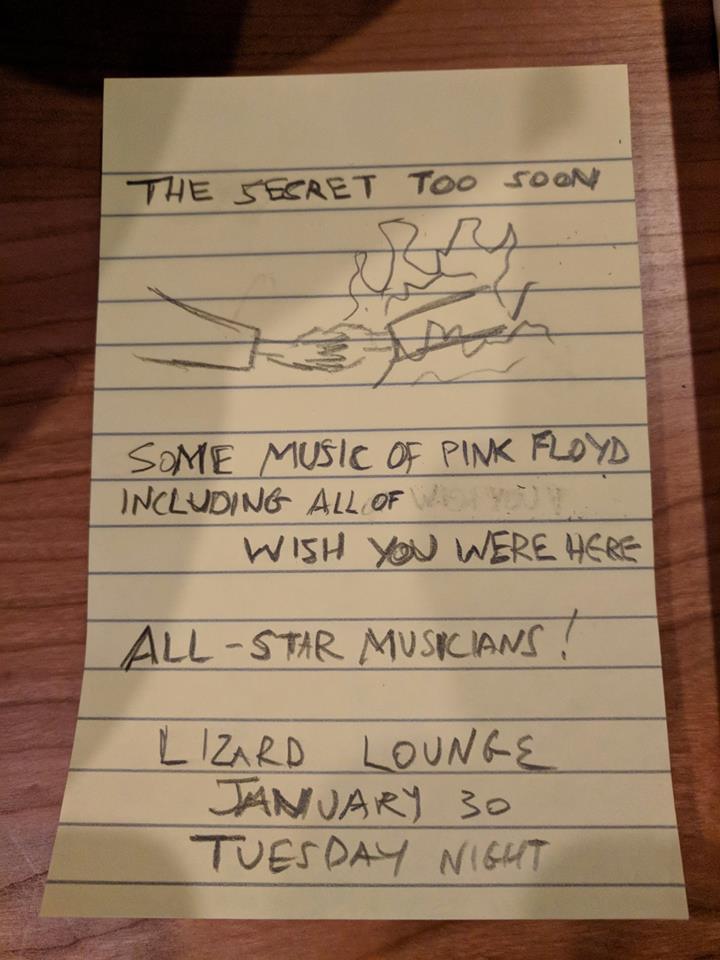 THE SECRET TOO SOON
SOME MUSIC OF PINK FLOYD
INCLUDING ALL OF
WISH YOU WERE HERE
ALL-STAR MUSICIANS!
LIZARD LOUNGE
JANUARY 30
TUESDAY NIGHT